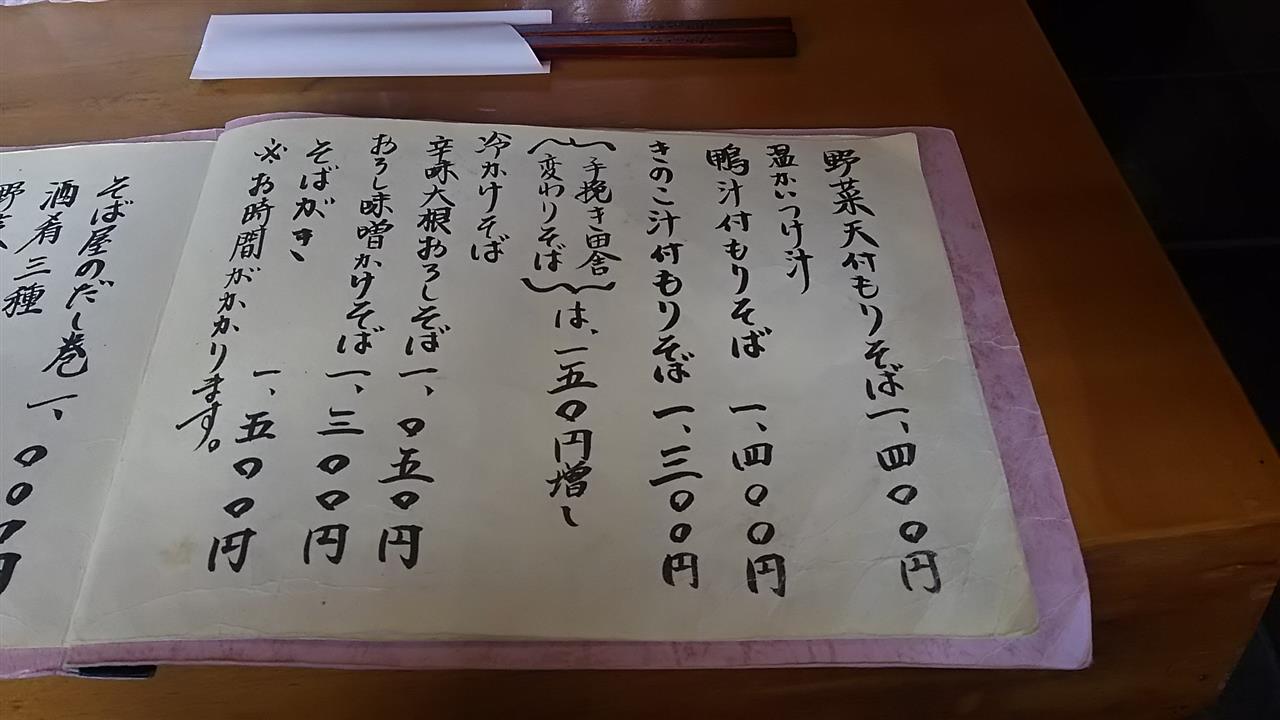 野菜天付もりそば 一、四〇〇円
温かいつけ汁
鴨汁付もりそば 一、四〇〇円
きのこ汁付もりそば 一、三〇〇円
手挽き田舎
変わりそば
は、一五〇円増し
冷かけそば
辛味大根おろしそば 一、〇五〇円
おろし味噌かけそば 一、三〇〇円
そばがき 一、五〇〇円
※お時間がかかります。
そば屋のだし巻 一、〇〇〇円
酒肴三種
野菜